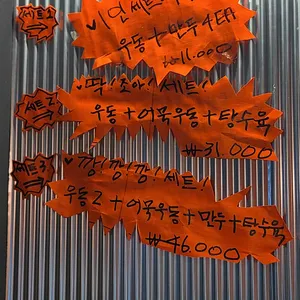 세트1
♥1인세트
우동+만두4EA
₩11.000
세트2
딱!조아!세트!
우동+어묵우동+탕수육
₩31.000
세트3
♥깡!깡!깡!세트!
우동2+어묵우동+만두+탕수육
₩46.000